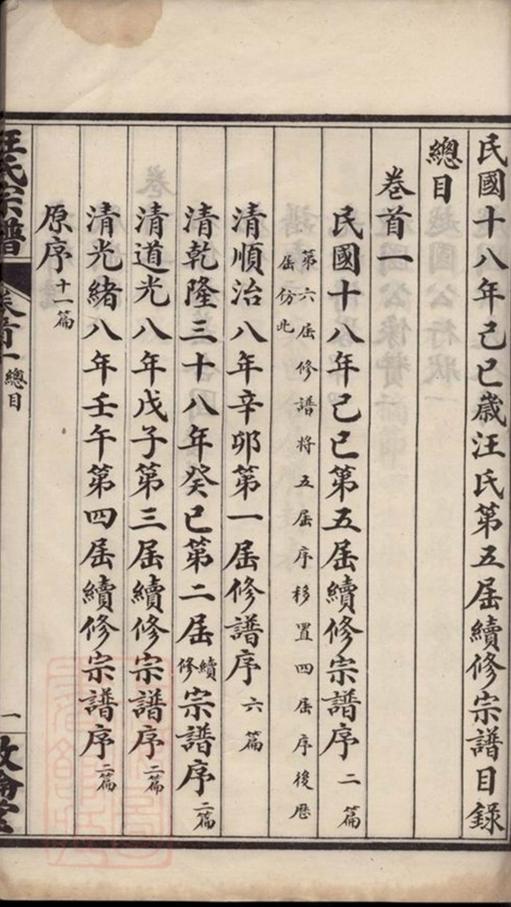 民國十八年己巳歲汪氏第五屆續修宗譜目錄
總目
卷首一
民國十八年己巳第五屆續修宗譜序二篇
第六屆修譜將五屆序移置四屆序後歷
屆仿此
清順治八年辛卯第一屆修譜序六篇
清乾隆三十八年癸巳第二屆續修宗譜序二篇
清道光八年戊子第三屆續修宗譜序二篇
清光緒八年壬午第四屆續修宗譜序二篇
原序十一篇
汪氏宗譜 卷首一總目 一 敦倫堂